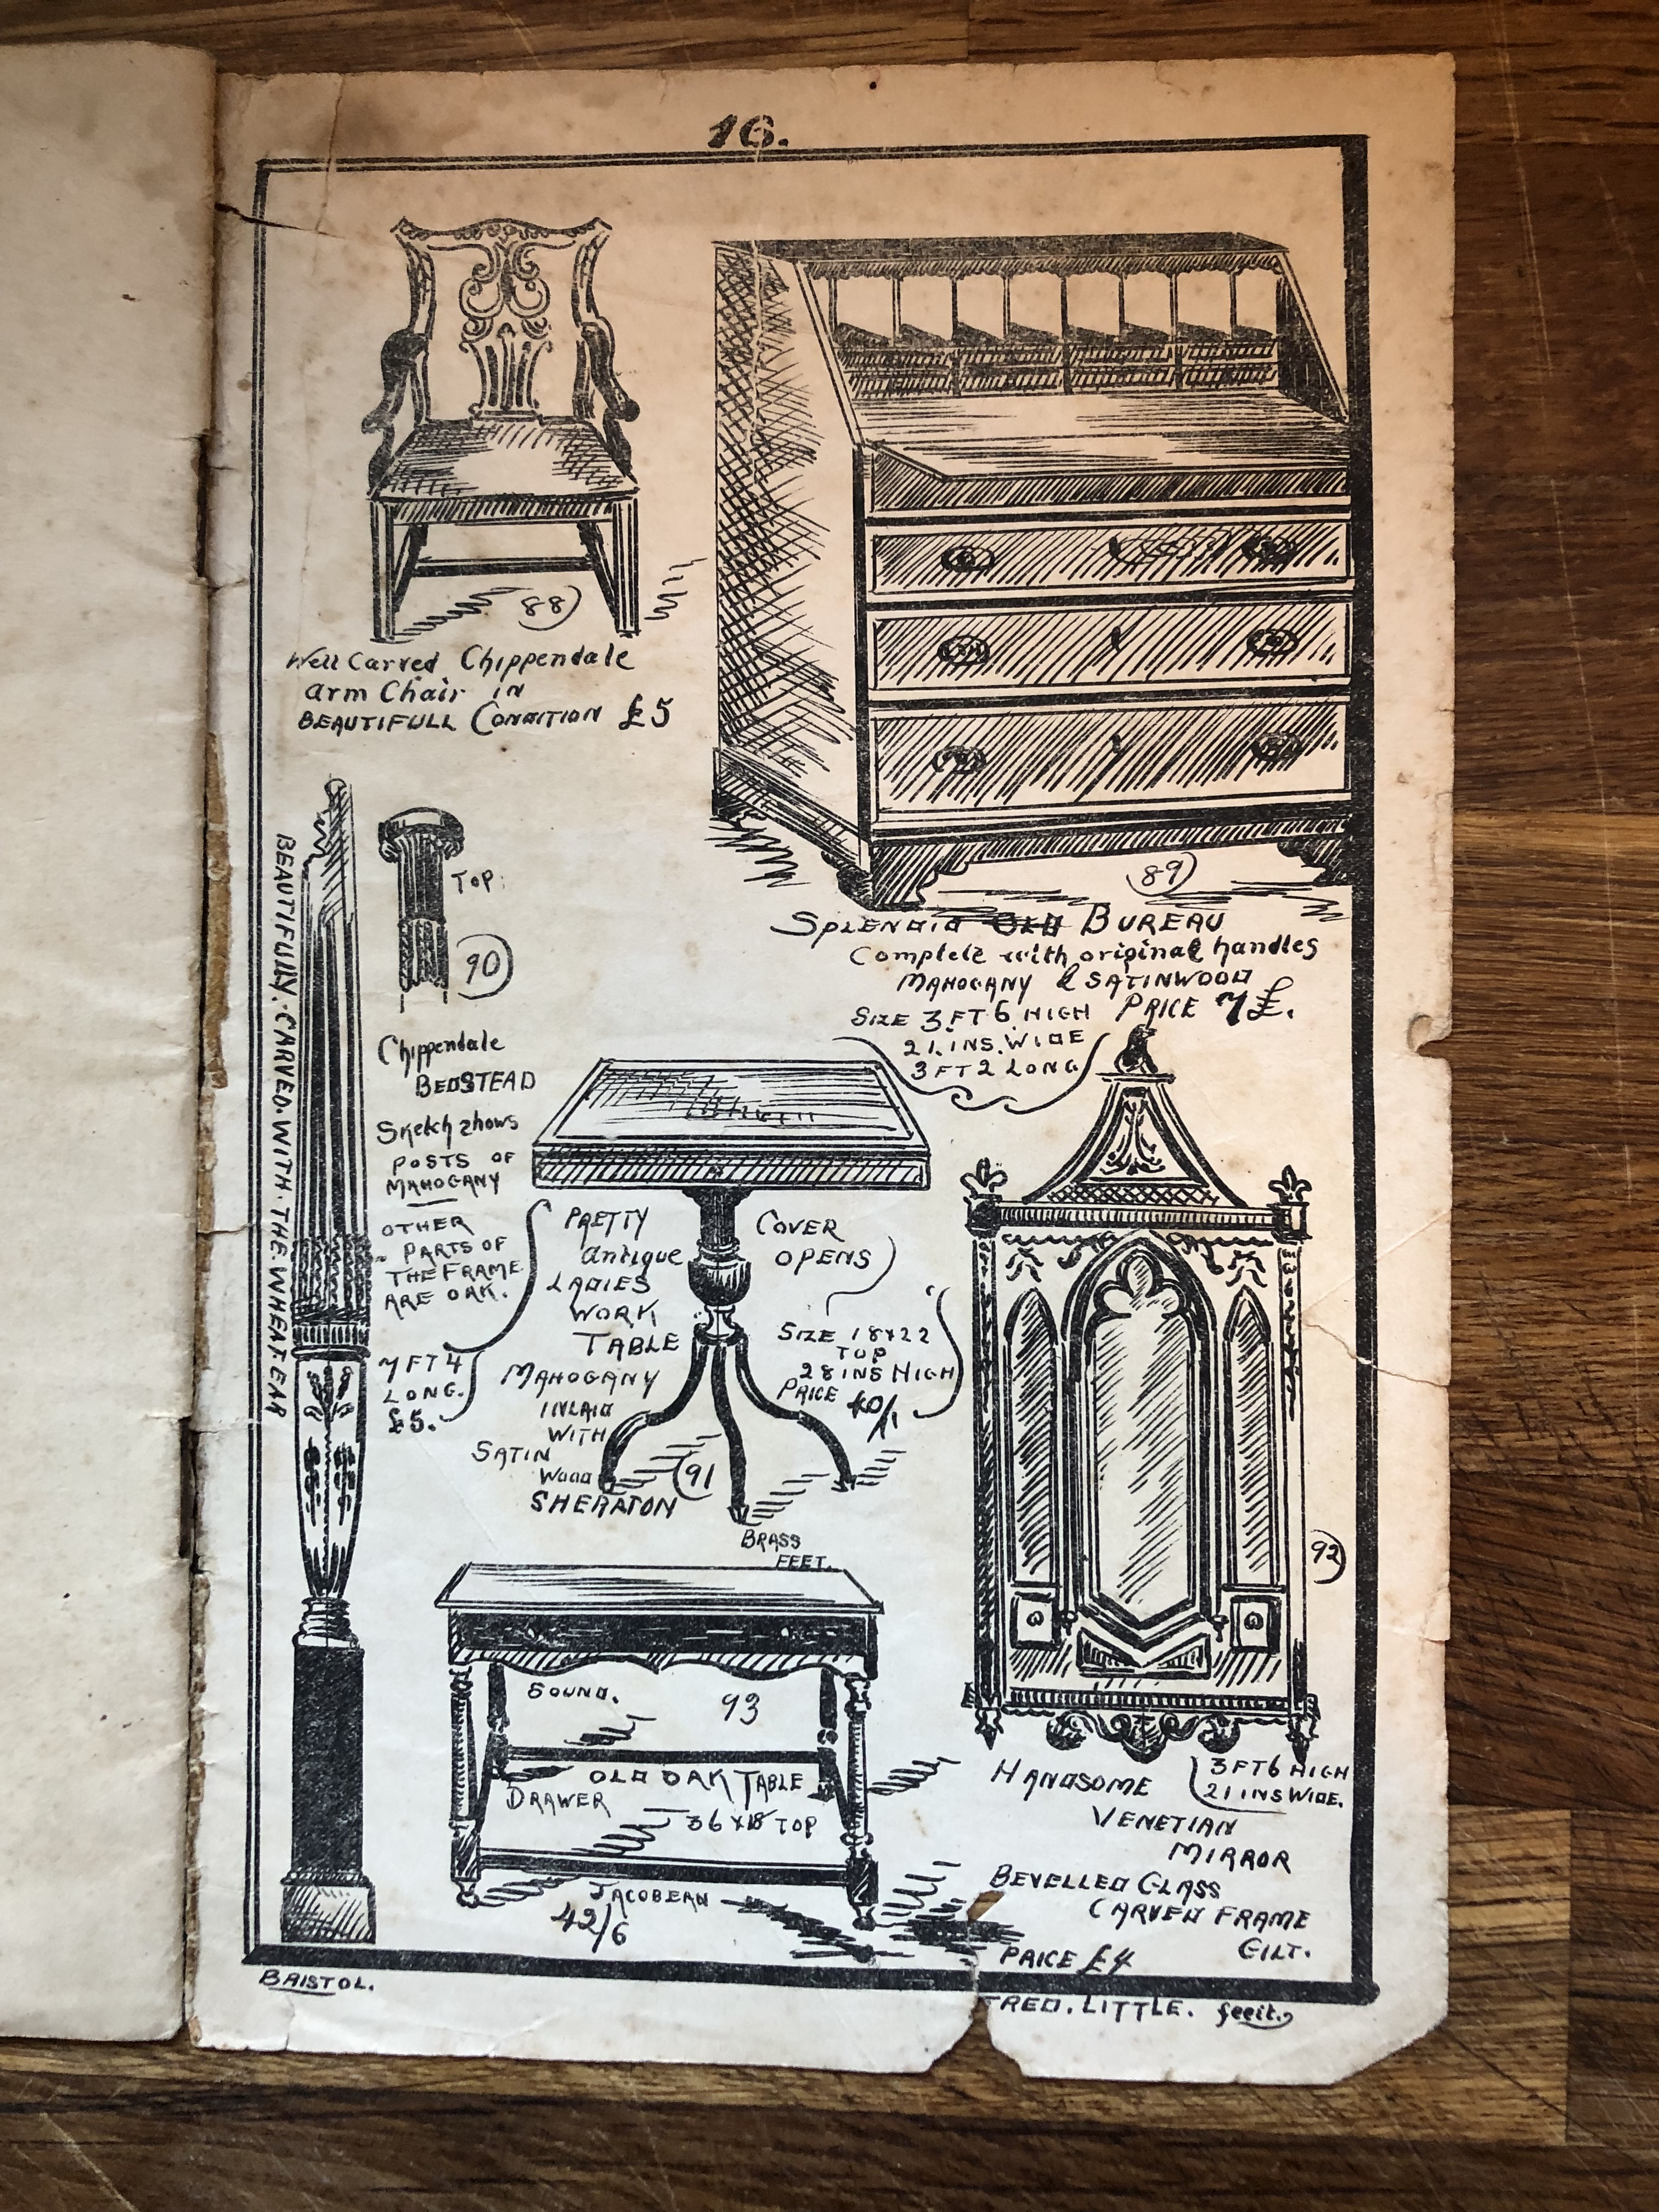 16.
88
Well Carved Chippendale
arm Chair in
BEAUTIFULL CONDITION £5
89
SPLENDID OLD BUREAU
Complete with original handles
MAHOGANY & SATINWOOD
SIZE 3 FT 6 HIGH PRICE 7£.
21. INS. WIDE
3 FT 2 LONG
BEAUTIFULLY. CARVED. WITH. THE. WHEAT. EAR
TOP.
90
Chippendale
BEDSTEAD
Sketch shows
POSTS OF
MAHOGANY
OTHER
PARTS OF
THE FRAME
ARE OAK.
7 FT 4
LONG.
£5.
PRETTY
antique
LADIES
WORK
TABLE
MAHOGANY
INLAID
WITH
SATIN
WOOD
SHERATON
91
COVER
OPENS
SIZE 18x22
TOP
28 INS HIGH
PRICE 40/.
BRASS
FEET.
92
HANDSOME
3 FT 6 HIGH
21 INS WIDE.
VENETIAN
MIRROR
BEVELLED GLASS
CARVED FRAME
GILT.
PRICE £4
SOUND.
93
OLD OAK TABLE
DRAWER
36 x 18 TOP
JACOBEAN
42/6
BRISTOL.
FRED. LITTLE. fecit.